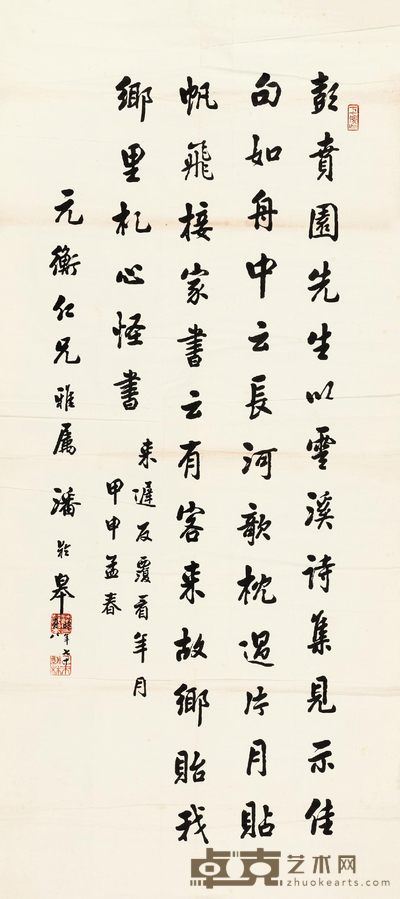 彭賁園先生以雲溪詩集見示佳
句如舟中云長河歌枕過片月貼
帆飛接家書云有客來故鄉貽我
鄉里札心怪書
来遲反覆看年月
甲申孟春
元衡仁兄雅属 潘齡皋
時年七十八
卓克艺术网
zhuokearts.com